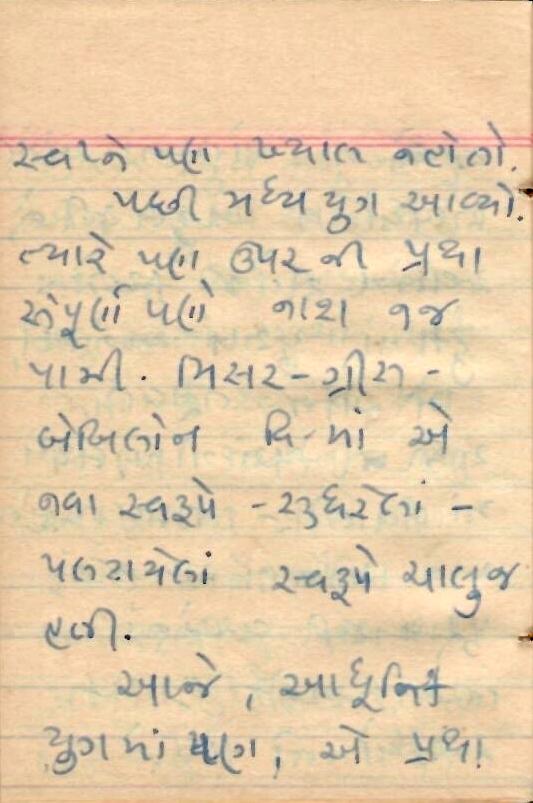 સ્વપ્ને પણ ખ્યાલ નહોતો.
પછી મધ્ય યુગ આવ્યો.
ત્યારે પણ ઉપર ની પ્રથા
સંપૂર્ણ પણે નાશ નજ
પામી. મિસર-ગ્રીસ-
બેબિલોન વિ-માં એ
નવા સ્વરૂપે -સુધરેલાં-
પલટાયેલાં સ્વરૂપે ચાલુજ
હતી.
આજે, આધૂનિક
યુગમાં પણ, એ પ્રથા